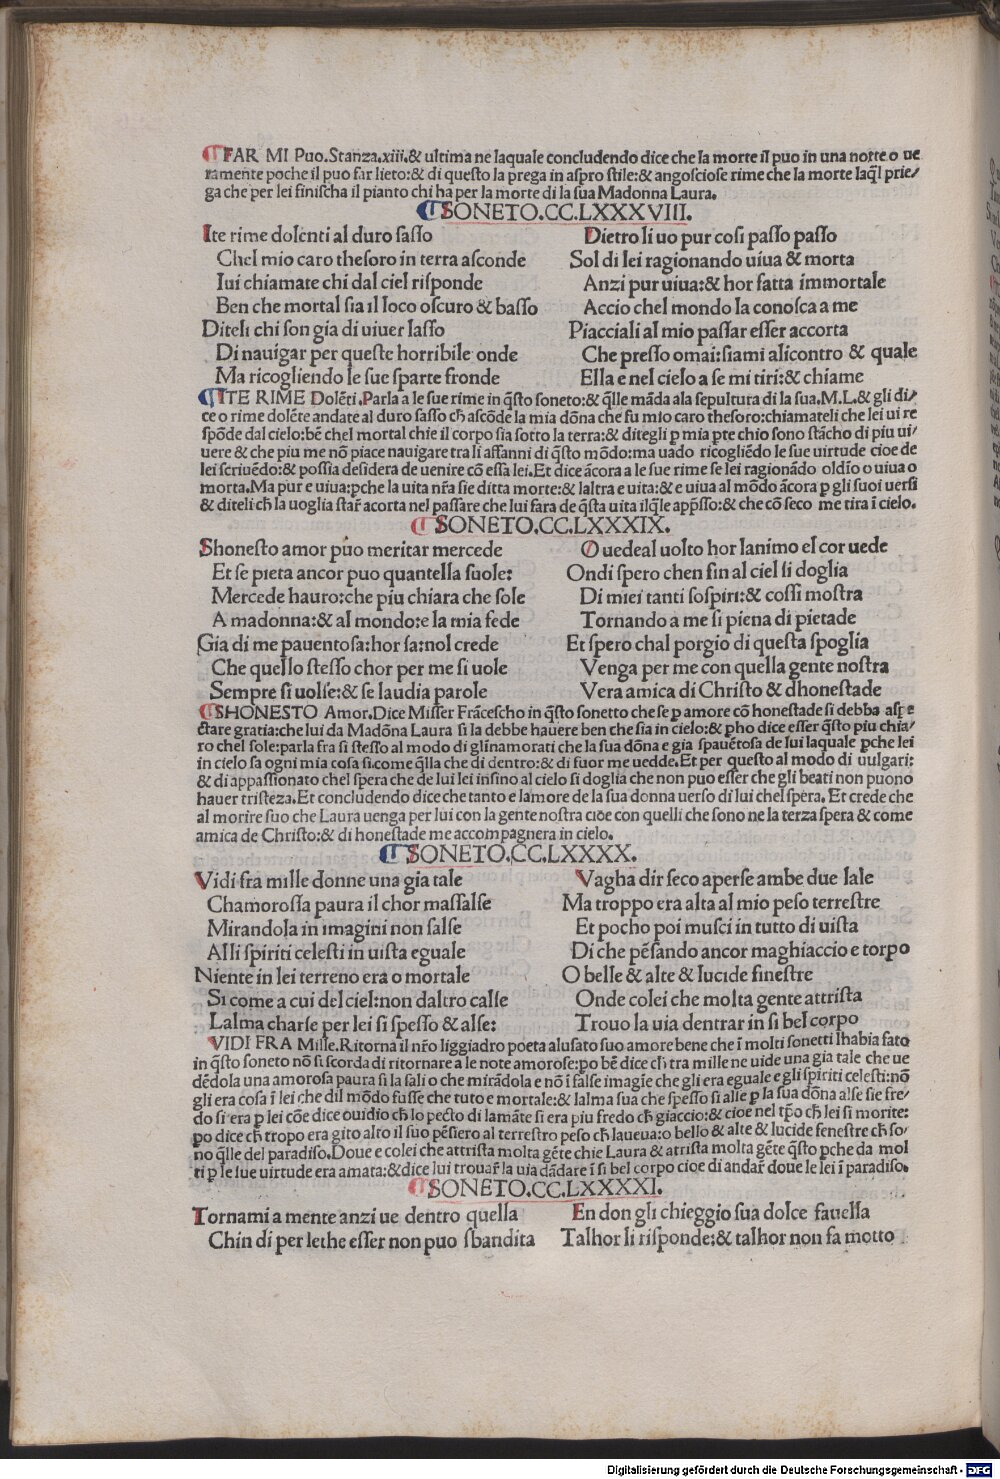 ¶FAR MI Puo.Stanza.xiii.& ultima ne laquale concludendo dice che la morte il puo in una notte o ue
ramente poche il puo far lieto:& di questo la prega in aspro stile:& angosciose rime che la morte laql̃ prie/
ga che per lei finischa il pianto chi ha per la morte di la sua Madonna Laura.
¶SONETO.CC.LXXXVIII.
Ite rime dolenti al duro sasso
Chel mio caro thesoro in terra asconde
Iui chiamate chi dal ciel risponde
Ben che mortal sia il loco oscuro & basso
Diteli chi son gia di uiuer lasso
Di nauigar per queste horribile onde
Ma ricogliendo le sue sparte fronde
Dietro li uo pur cosi passo passo
Sol di lei ragionando uiua & morta
Anzi pur uiua:& hor fatta immortale
Accio chel mondo la conosca a me
Piacciali al mio passar esser accorta
Che presso omai:siami alicontro & quale
Ella e nel cielo a se mi tiri:& chiame
¶ITE RIME Dolẽti.Parla a le sue rime in q̃sto soneto:& q̃lle mãda ala sepultura di la sua.M.L.& gli di/
ce o rime dolẽte andate al duro sasso ch̃ ascõde la mia dõna che fu mio caro thesoro:chiamateli che lei ui re
spõde dal cielo:bẽ chel mortal chie il corpo sia sotto la terra:& ditegli p mia pte chio sono stãcho di piu ui/
uere & che piu me nõ piace nauigare tra li affanni di q̃sto mõdo:ma uado ricogliẽdo le sue uirtude cioe de
lei scriuẽdo:& possia desidera de uenire cõ essa lei.Et dice ãcora a le sue rime se lei ragionãdo oldĩo o uiua o
morta.Ma pur e uiua:pche la uita nr̃a sie ditta morte:& laltra e uita:& e uiua al mõdo ãcora p gli suoi uersi
& diteli ch̃ la uoglia star̃ acorta nel passare che lui fara de q̃sta uita ilq̃le app̃sso:& che cõ seco me tira ĩ cielo.
¶SONETO.CC.LXXXIX.
Shonesto amor puo meritar mercede
Et se pieta ancor puo quantella suole:
Mercede hauro:che piu chiara che sole
A madonna:& al mondo:e la mia fede
Gia di me pauentosa:hor sa:nol crede
Che quello stesso chor per me si uole
Sempre si uolse:& se laudia parole
O uedeal uolto hor lanimo el cor uede
Ondi spero chen fin al ciel si doglia
Di miei tanti sospiri:& cossi mostra
Tornando a me si piena di pietade
Et spero chal porgio di questa spoglia
Venga per me con quella gente nostra
Vera amica di Christo & dhonestade
¶SHONESTO Amor.Dice Misser Frãcescho in q̃sto sonetto che se p amore cõ honestade si debba aspe
ctare gratia:che lui da Madõna Laura si la debbe hauere ben che sia in cielo:& pho dice esser q̃sto piu chia/
ro chel sole:parla fra si stesso al modo di glĩnamorati che la sua dõna e gia spauẽtosa de lui laquale pche lei
in cielo sa ogni mia cosa si:come q̃lla che di dentro:& di fuor me uedde.Et per questo al modo di uulgari:
& di appassionato chel spera che de lui lei insino al cielo si doglia che non puo esser che gli beati non puono
hauer tristeza.Et concludendo dice che tanto e lamore de la sua donna uerso di lui chel spera. Et crede che
al morire suo che Laura uenga per lui con la gente nostra cioe con quelli che sono ne la terza spera & come
amica de Christo:& di honestade me accompagnera in cielo.
¶SONETO.CC.LXXXX.
Vidi fra mille donne una gia tale
Chamorossa paura il chor massalse
Mirandola in imagini non false
Alli spiriti celesti in uista eguale
Niente in lei terreno era o mortale
Si come a cui del ciel:non daltro calse
Lalma charse per lei si spesso & alse:
Vagha dir seco aperse ambe due lale
Ma troppo era alta al mio peso terrestre
Et pocho poi musci in tutto di uista
Di che pẽsando ancor maghiaccio e torpo
O belle & alte & lucide finestre
Onde colei che molta gente attrista
Trouo la uia dentrar in si bel corpo
VIDI FRA Mille.Ritorna il nr̃o liggiadro poeta alusato suo amore bene che ĩ molti sonetti lhabia fato
in q̃sto soneto nõ si scorda di ritornare a le note amorose:po bẽ dice ch̃ tra mille ne uide una gia tale che ue
dẽdola una amorosa paura si la sali o che mirãdola e nõ ĩ false imagĩe che gli era eguale e gli spiriti celesti:nõ
gli era cosa ĩ lei che dil mõdo fusse che tuto e mortale:& lalma sua che spesso si alse p la sua dõna alse sie fre/
do si era p lei cõe dice ouidio ch̃ lo pecto di lamãte si era piu fredo ch̃ giaccio:& cioe nel tp̃o ch̃ lei si morite:
po dice ch̃ tropo era gito alto il suo pẽsiero al terrestro peso ch̃ laueua:o bello & alte & lucide fenestre ch̃ so/
no q̃lle del paradiso.Doue e colei che attrista molta gẽte chie Laura & atrista molta gẽte q̃sto pche da mol
ti p le sue uirtude era amata:&dice lui trouar̃ la uia dãdare ĩ si bel corpo cioe di andar̃ doue le lei ĩ paradiso.
¶SONETO.CC.LXXXXI.
Tornami a mente anzi ue dentro quella
Chin di per lethe esser non puo sbandita
En don gli chieggio sua dolce fauella
Talhor li risponde:& talhor non fa motto
Digitalisierung gefördert durch die Deutsche Forschungsgemeinschaft - DFG